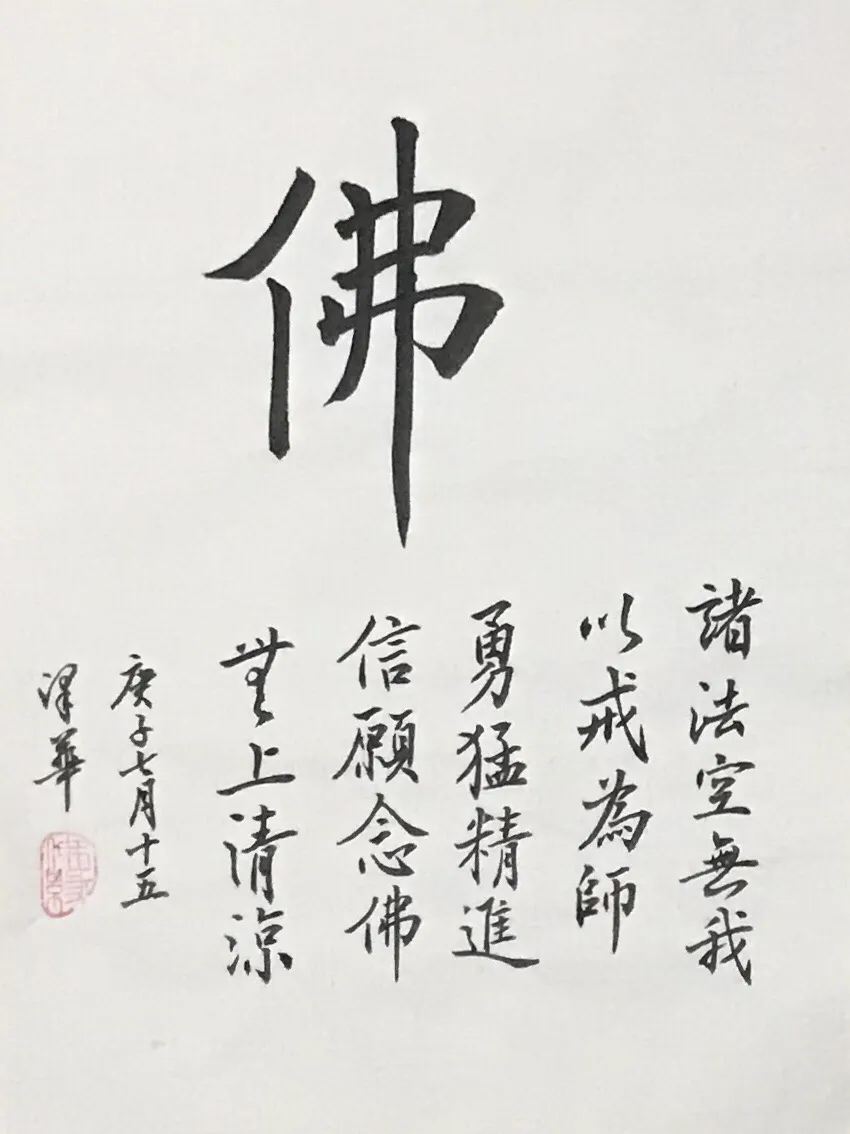 佛
諸法空無我
以戒為師
勇猛精進
信願念佛
無上清涼
庚子七月十五
澤華